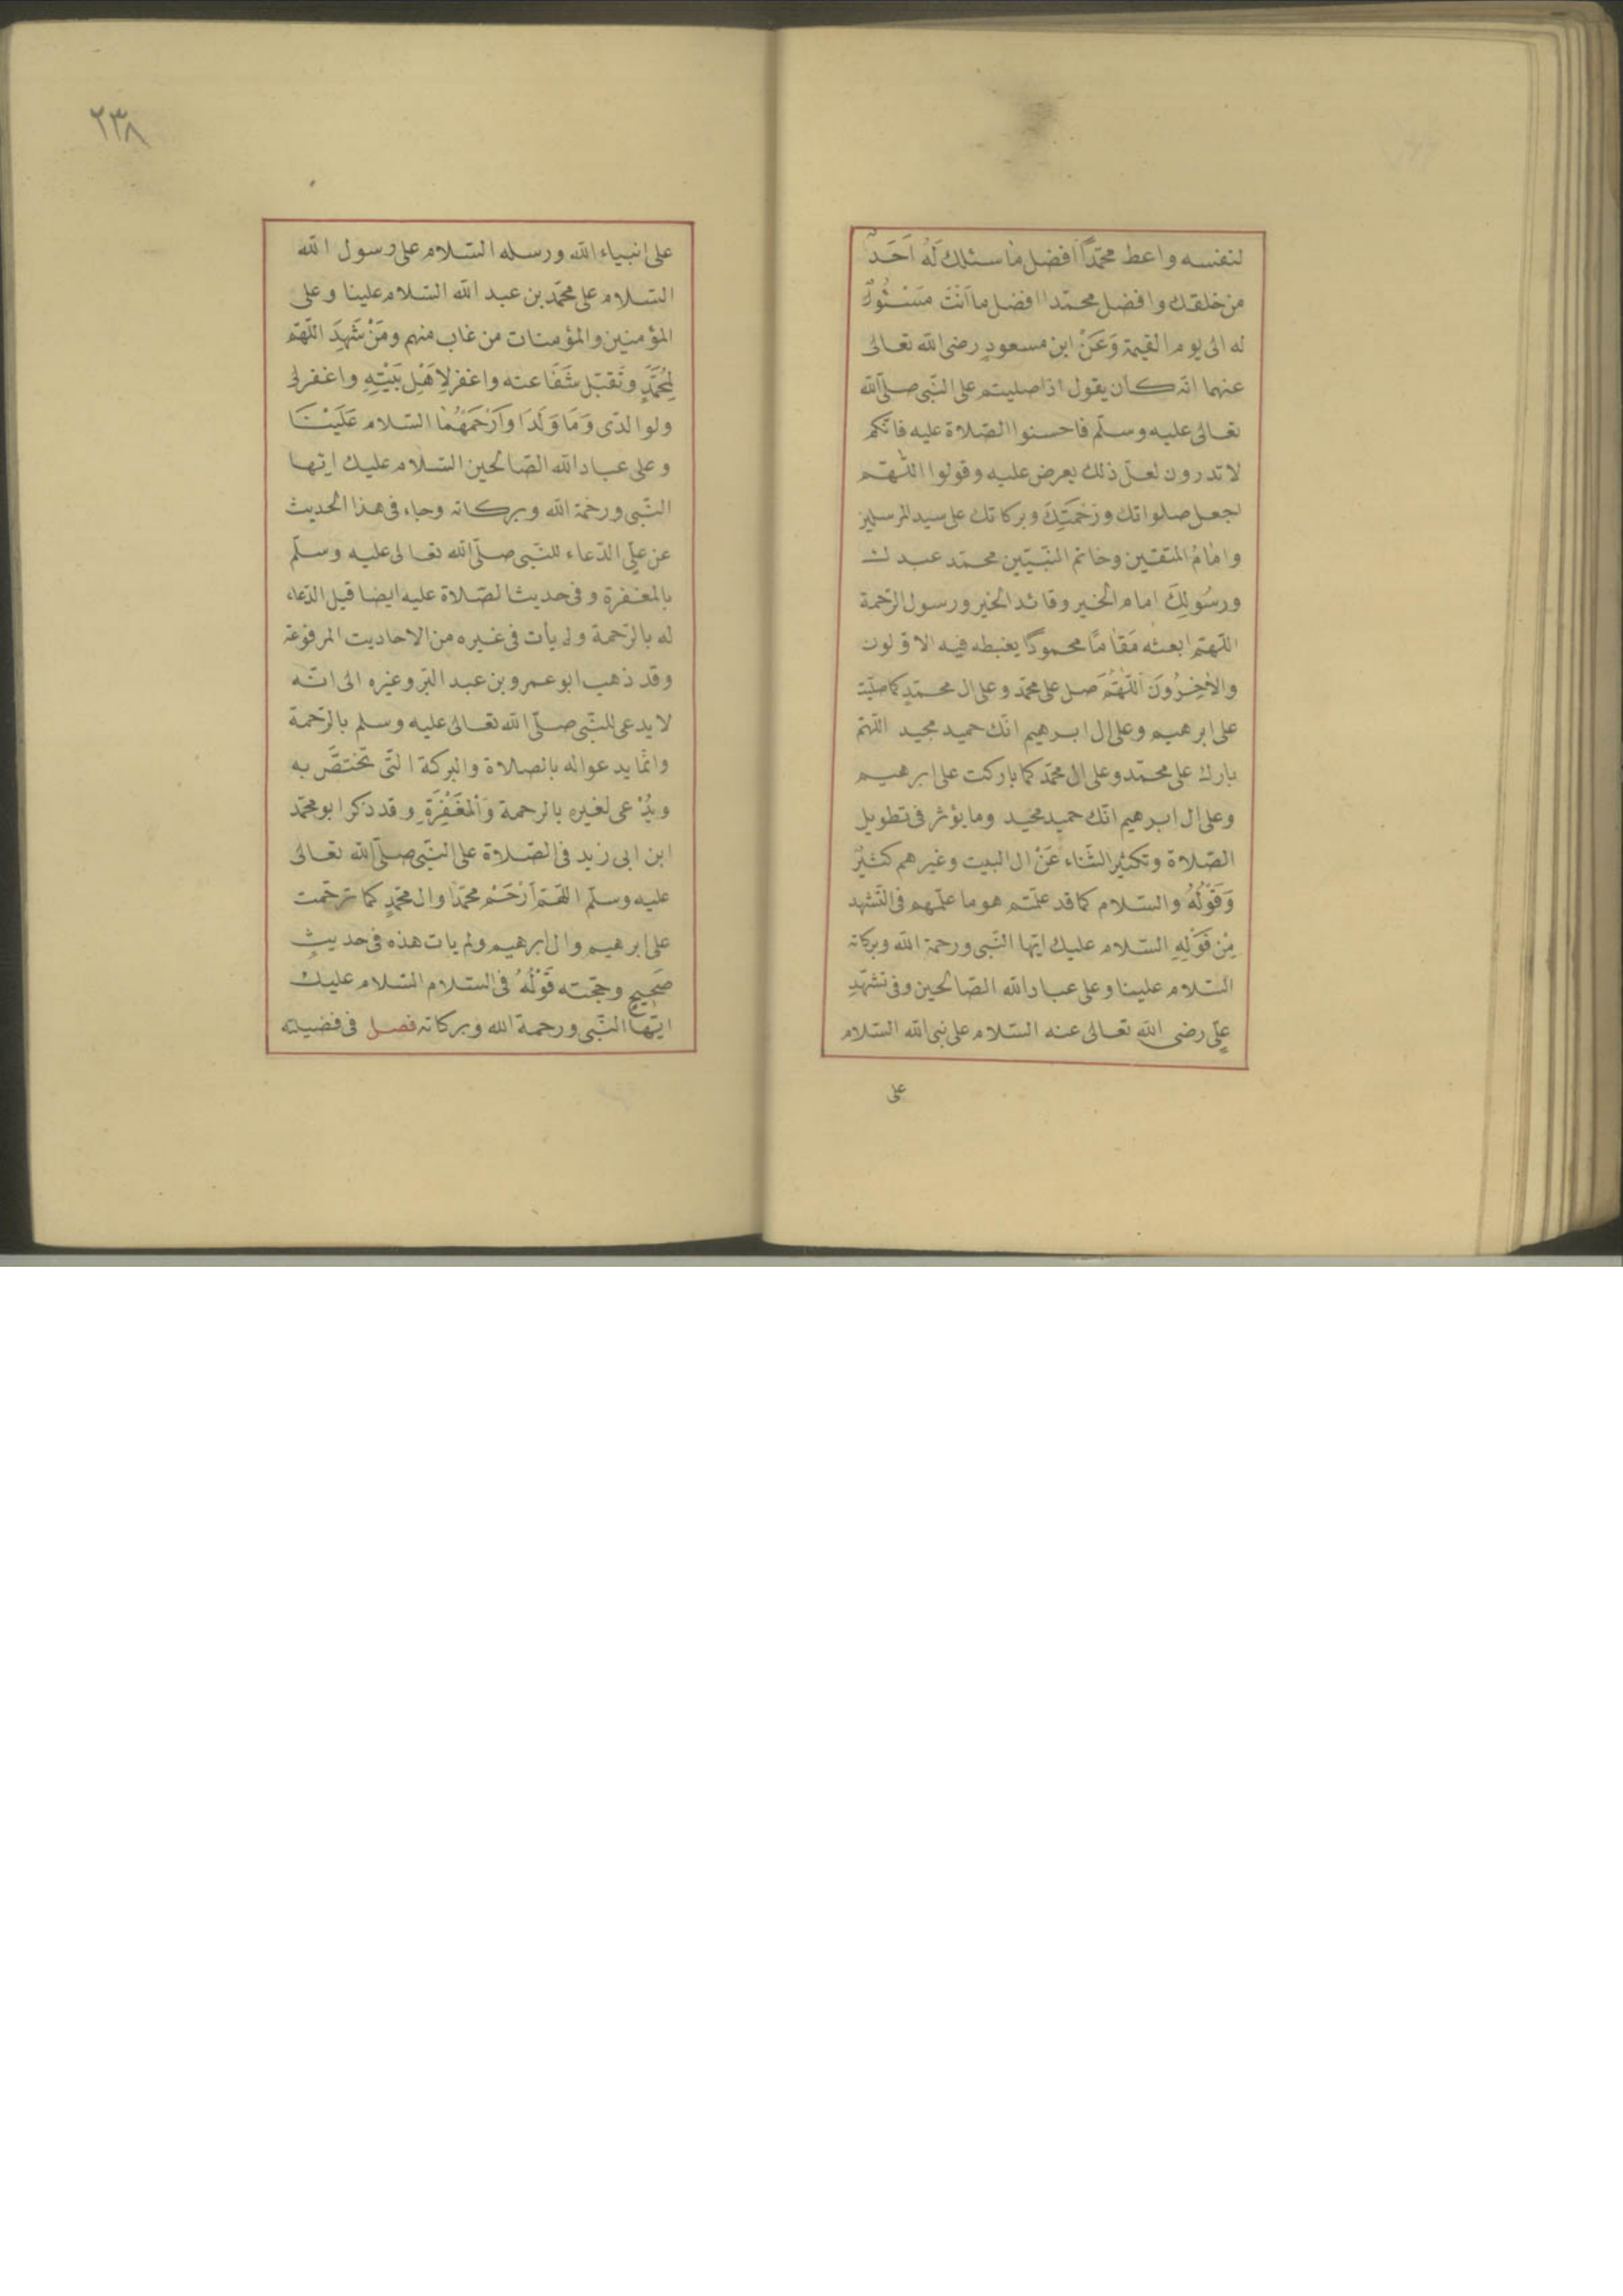 لنفسه واعط محمّدًا افضل ما سئلك لَهُ اَحَدٌ
من خلقك وافضل محمّدا افضل ما اَنْتَ مَسْئُولٌ
له الى يوم القيمة وَعَنْ ابن مسعودٍ رضى الله تعالى
عنهما انّه كان يقول اذا صليتم على النّبى صلّى الله
تعالى عليه وسلّم فاحسنوا الصّلاة عليه فانّكم
لا تدرون لعلّ ذلك يعرض عليه وقولوا اللّهمّ
اجعل صلواتك وَرَحْمَتِكَ وبركاتك على سيد المرسلين
وامامُ المتقين وخاتم النّبيّين محمّد عبدك
ورسُولِكَ امام الخير وقائد الخير ورسول الرّحمة
اللّهمّ ابعثه مَقَامًا محمودًا يغبطه فيه الاوّلون
والاٰخِرُونَ اَللّٰهُمَّ صل على محمّد وعلى ال محمّدٍ كما صلّيت
على ابرهيم وعلى ال ابرهيم انّك حميد مجيد اللّهمّ
بارك على محمّد وعلى ال محمّد كما باركت على ابرهيم
وعلى ال ابرهيم انّك حميد مجيد وما يؤثر فى تطويل
الصّلاة وتكثير الثّناء عَنْ ال البيت وغيرهم كثيرٌ
وَقَوْلُهُ والسّلام كما قد علّمتم هو ما علّمهم فى التّشهد
مِنْ قَوْلِهِ السّلام عليك ايّها النّبى ورحمة الله وبركاته
السّلام علينا وعلى عباد الله الصّالحين وفى تشهّدِ
علىٍّ رضى الله تعالى عنه السّلام على نبى الله السّلام
على
٢٣٨
على انبياء الله ورسله السّلام على رسول الله
السّلام على محمّد بن عبد الله السّلام علينا وعلى
المؤمنين والمؤمنات من غاب منهم ومَنْ شَهِدَ اللّهمّ
لِمُحَمَّدٍ وتَقبّل شَفَاعته واغفر لِاَهْلِ بَيْتِهِ واغفر لى
ولوالدىّ وَمَا وَلَدَا وَاَرْحَمْهُمَا السّلام عَلَيْنَا
وعلى عباد الله الصّالحين السّلام عليك ايّها
النّبى ورحمة الله وبركاته وجاء فى هذا الحديث
عن علىّ الدّعاء للنّبى صلّى الله تعالى عليه وسلّم
بالمغفرة وفى حديث الصّلاة عليه ايضا قبل الدّعاء
له بالرّحمة ولم يأت فى غيره من الاحاديث المرفوعة
وقد ذهب ابو عمرو بن عبد البّر وغيره الى انّه
لا يدعى للنّبى صلّى الله تعالى عليه وسلم بالرّحمة
وانّما يدعو اله بالصلاة والبركة الّتى تختصّ به
ويُدْعى لغيره بالرحمة وَاَلْمَغْفِرَةِ وقد ذكر ابو محمّد
ابن ابى زيد فى الصّلاة على النّبى صلّى الله تعالى
عليه وسلّم اللّهمّ اَرْحَمْ محمّدًا وال محمّدٍ كما ترحّمت
على ابرهيم وال ابرهيم ولم يات هذه فى حديثٍ
صَحِيحٍ وحجّته قَوْلُهُ فى السّلام السّلام عليك
ايّها النّبى ورحمة الله وبركاته فصل فى فضيلة